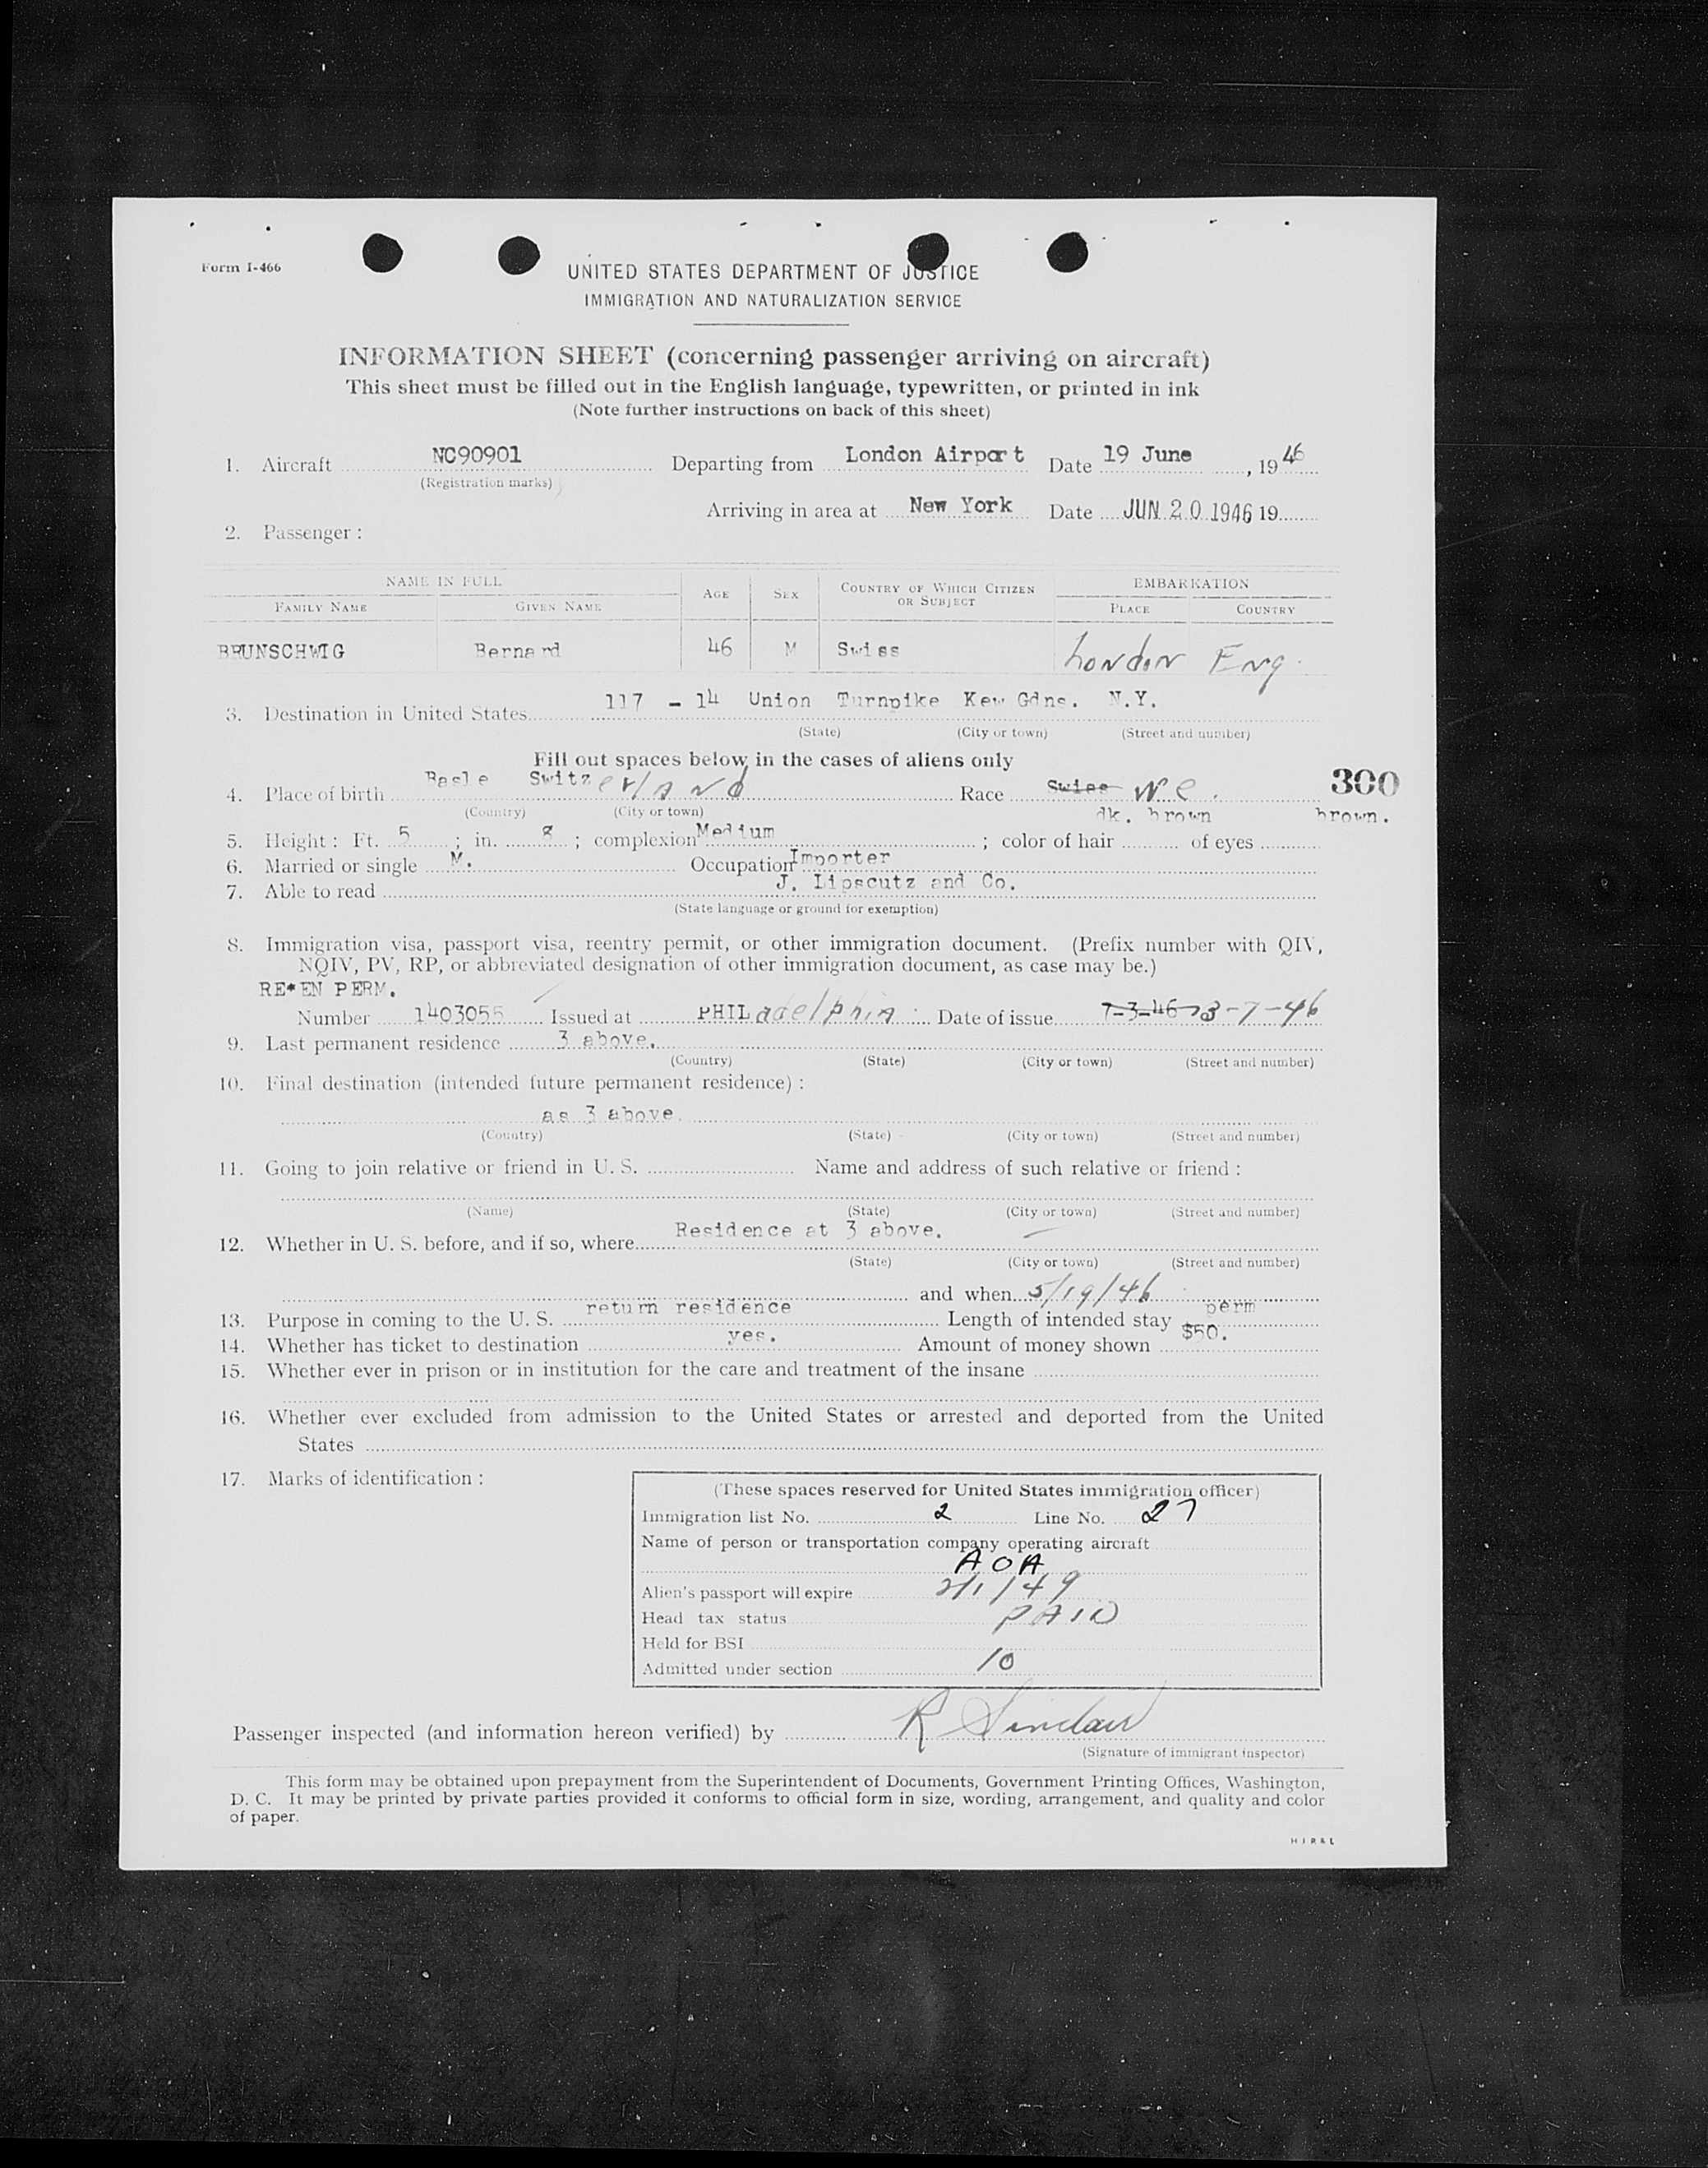 Form I-466
UNITED STATES DEPARTMENT OF JUSTICE
IMMIGRATION AND NATURALIZATION SERVICE
INFORMATION SHEET (concerning passenger arriving on aircraft)
This sheet must be filled out in the English language, typewritten, or printed in ink
(Note further instructions on back of this sheet)
1. Aircraft NC90901 Departing from London Airport Date 19 June, 1946
(Registration marks)
Arriving in area at New York Date JUN 20 1946 19
2. Passenger:
NAME IN FULL AGE SEX COUNTRY OF WHICH CITIZEN OR SUBJECT EMBARKATION
FAMILY NAME GIVEN NAME PLACE COUNTRY
BRUNSCHWIG Bernard 46 M Swiss London Eng.
3. Destination in United States 117 - 14 Union Turnpike Kew Gdns. N.Y.
(State) (City or town) (Street and number)
Fill out spaces below in the cases of aliens only
4. Place of birth Basle Switzerland Race Swiss We. 300
(Country) (City or town)
5. Height: Ft. 5; in. 8; complexion Medium; color of hair dk. brown of eyes brown.
6. Married or single M. Occupation Importer
7. Able to read J. Lipscutz and Co.
(State language or ground for exemption)
8. Immigration visa, passport visa, reentry permit, or other immigration document. (Prefix number with QIV,
NQIV, PV, RP, or abbreviated designation of other immigration document, as case may be.)
RE*EN PERM.
Number 1403055 Issued at PHILadelphia Date of issue 7-3-46 3-7-46
9. Last permanent residence 3 above.
(Country) (State) (City or town) (Street and number)
10. Final destination (intended future permanent residence):
as 3 above.
(Country) (State) (City or town) (Street and number)
11. Going to join relative or friend in U. S. Name and address of such relative or friend:
(Name) (State) (City or town) (Street and number)
12. Whether in U. S. before, and if so, where Residence at 3 above.
(State) (City or town) (Street and number)
and when 5/19/46
13. Purpose in coming to the U. S. return residence Length of intended stay perm
14. Whether has ticket to destination yes. Amount of money shown $50.
15. Whether ever in prison or in institution for the care and treatment of the insane
16. Whether ever excluded from admission to the United States or arrested and deported from the United
States
17. Marks of identification:
(These spaces reserved for United States immigration officer)
Immigration list No. 2 Line No. 27
Name of person or transportation company operating aircraft
AOA
Alien's passport will expire 2/1/49
Head tax status PAID
Held for BSI
Admitted under section 10
Passenger inspected (and information hereon verified) by R Sinclair
(Signature of immigrant inspector)
This form may be obtained upon prepayment from the Superintendent of Documents, Government Printing Offices, Washington,
D. C. It may be printed by private parties provided it conforms to official form in size, wording, arrangement, and quality and color
of paper.
HJR&L